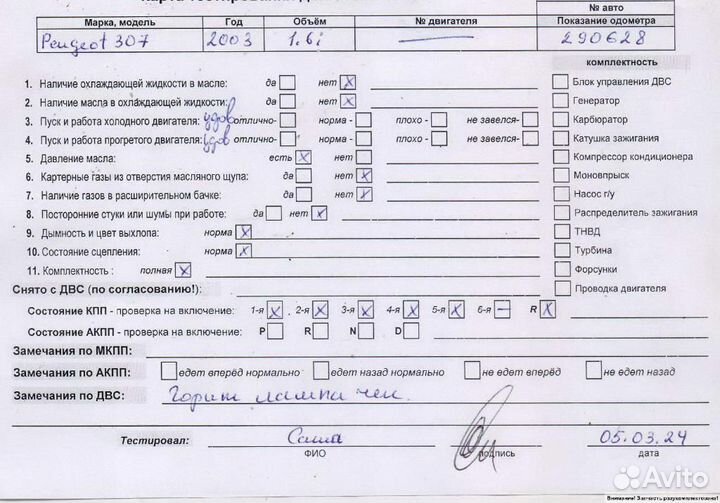 № авто
Марка, модель Год Объём № двигателя Показание одометра
Peugeot 307 2003 1.6i 290628
комплектность
1. Наличие охлаждающей жидкости в масле: да нет X Блок управления ДВС
2. Наличие масла в охлаждающей жидкости: да нет X Генератор
3. Пуск и работа холодного двигателя: удов отлично- норма - плохо - не завелся- Карбюратор
4. Пуск и работа прогретого двигателя: удов отлично- норма - плохо - не завелся- Катушка зажигания
5. Давление масла: есть X нет Компрессор кондиционера
6. Картерные газы из отверстия масляного щупа: да нет X Моновпрыск
7. Наличие газов в расширительном бачке: да нет X Насос г/у
8. Посторонние стуки или шумы при работе: да нет X Распределитель зажигания
9. Дымность и цвет выхлопа: норма X ТНВД
10. Состояние сцепления: норма X Турбина
11. Комплектность : полная X Форсунки
Снято с ДВС (по согласованию!): Проводка двигателя
Состояние КПП - проверка на включение: 1-я X 2-я X 3-я X 4-я X 5-я X 6-я — R X
Состояние АКПП - проверка на включение: P R N D
Замечания по МКПП:
Замечания по АКПП: едет вперёд нормально едет назад нормально не едет вперёд не едет назад
Замечания по ДВС: Горит лампа чек.
Тестировал: Саша 05.03.24
ФИО подпись дата
Avito
Внимание! Запчасть разукомплектована!